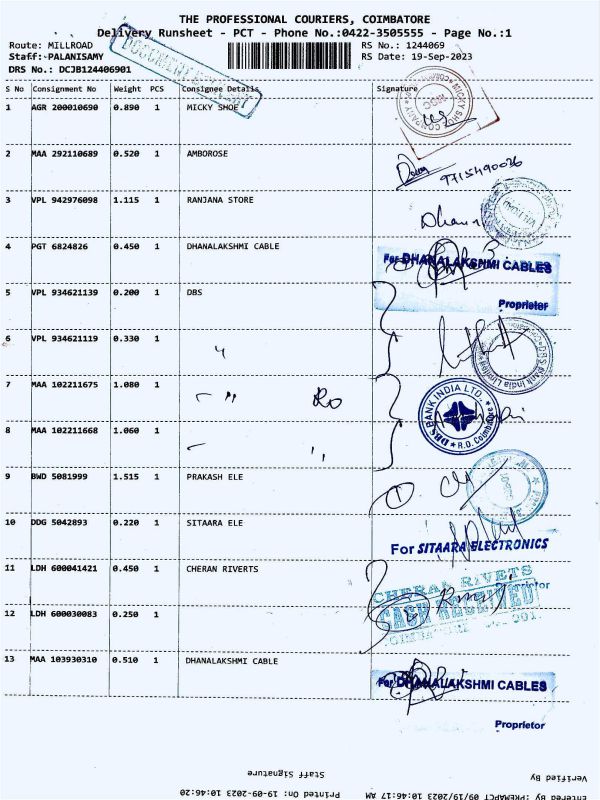 THE PROFESSIONAL COURIERS, COIMBATORE
Delivery Runsheet - PCT - Phone No.:0422-3505555 - Page No.:1
Route: MILLROAD RS No.: 1244069
Staff: PALANISAMY RS Date: 19-Sep-2023
DRS No.: DCJB124406901
S No Consignment No Weight PCS Consignee Details Signature
1 AGR 200010690 0.890 1 MICKY SHOE
2 MAA 292110689 0.520 1 AMBOROSE
9715490036
3 VPL 942976098 1.115 1 RANJANA STORE
Dhana
4 PGT 6824826 0.450 1 DHANALAKSHMI CABLE
For DHANALAKSHMI CABLES
Proprietor
5 VPL 934621139 0.200 1 DBS
6 VPL 934621119 0.330 1 "
7 MAA 102211675 1.080 1 - " RO
DBS BANK INDIA LTD., R.O. Coimbatore
8 MAA 102211668 1.060 1 - "
9 BWD 5081999 1.515 1 PRAKASH ELE
10 DDG 5042893 0.220 1 SITAARA ELE
For SITAARA ELECTRONICS
Proprietor
11 LDH 600041421 0.450 1 CHERAN RIVERTS
CHERAN RIVETS
CASH RECEIVED
12 LDH 600030083 0.250 1
13 MAA 103930310 0.510 1 DHANALAKSHMI CABLE
For DHANALAKSHMI CABLES
Proprietor
Staff Signature Verified By
Printed On: 19-09-2023 10:46:20 Entered By :PKEMAPCT 09/19/2023 10:46:17 AM